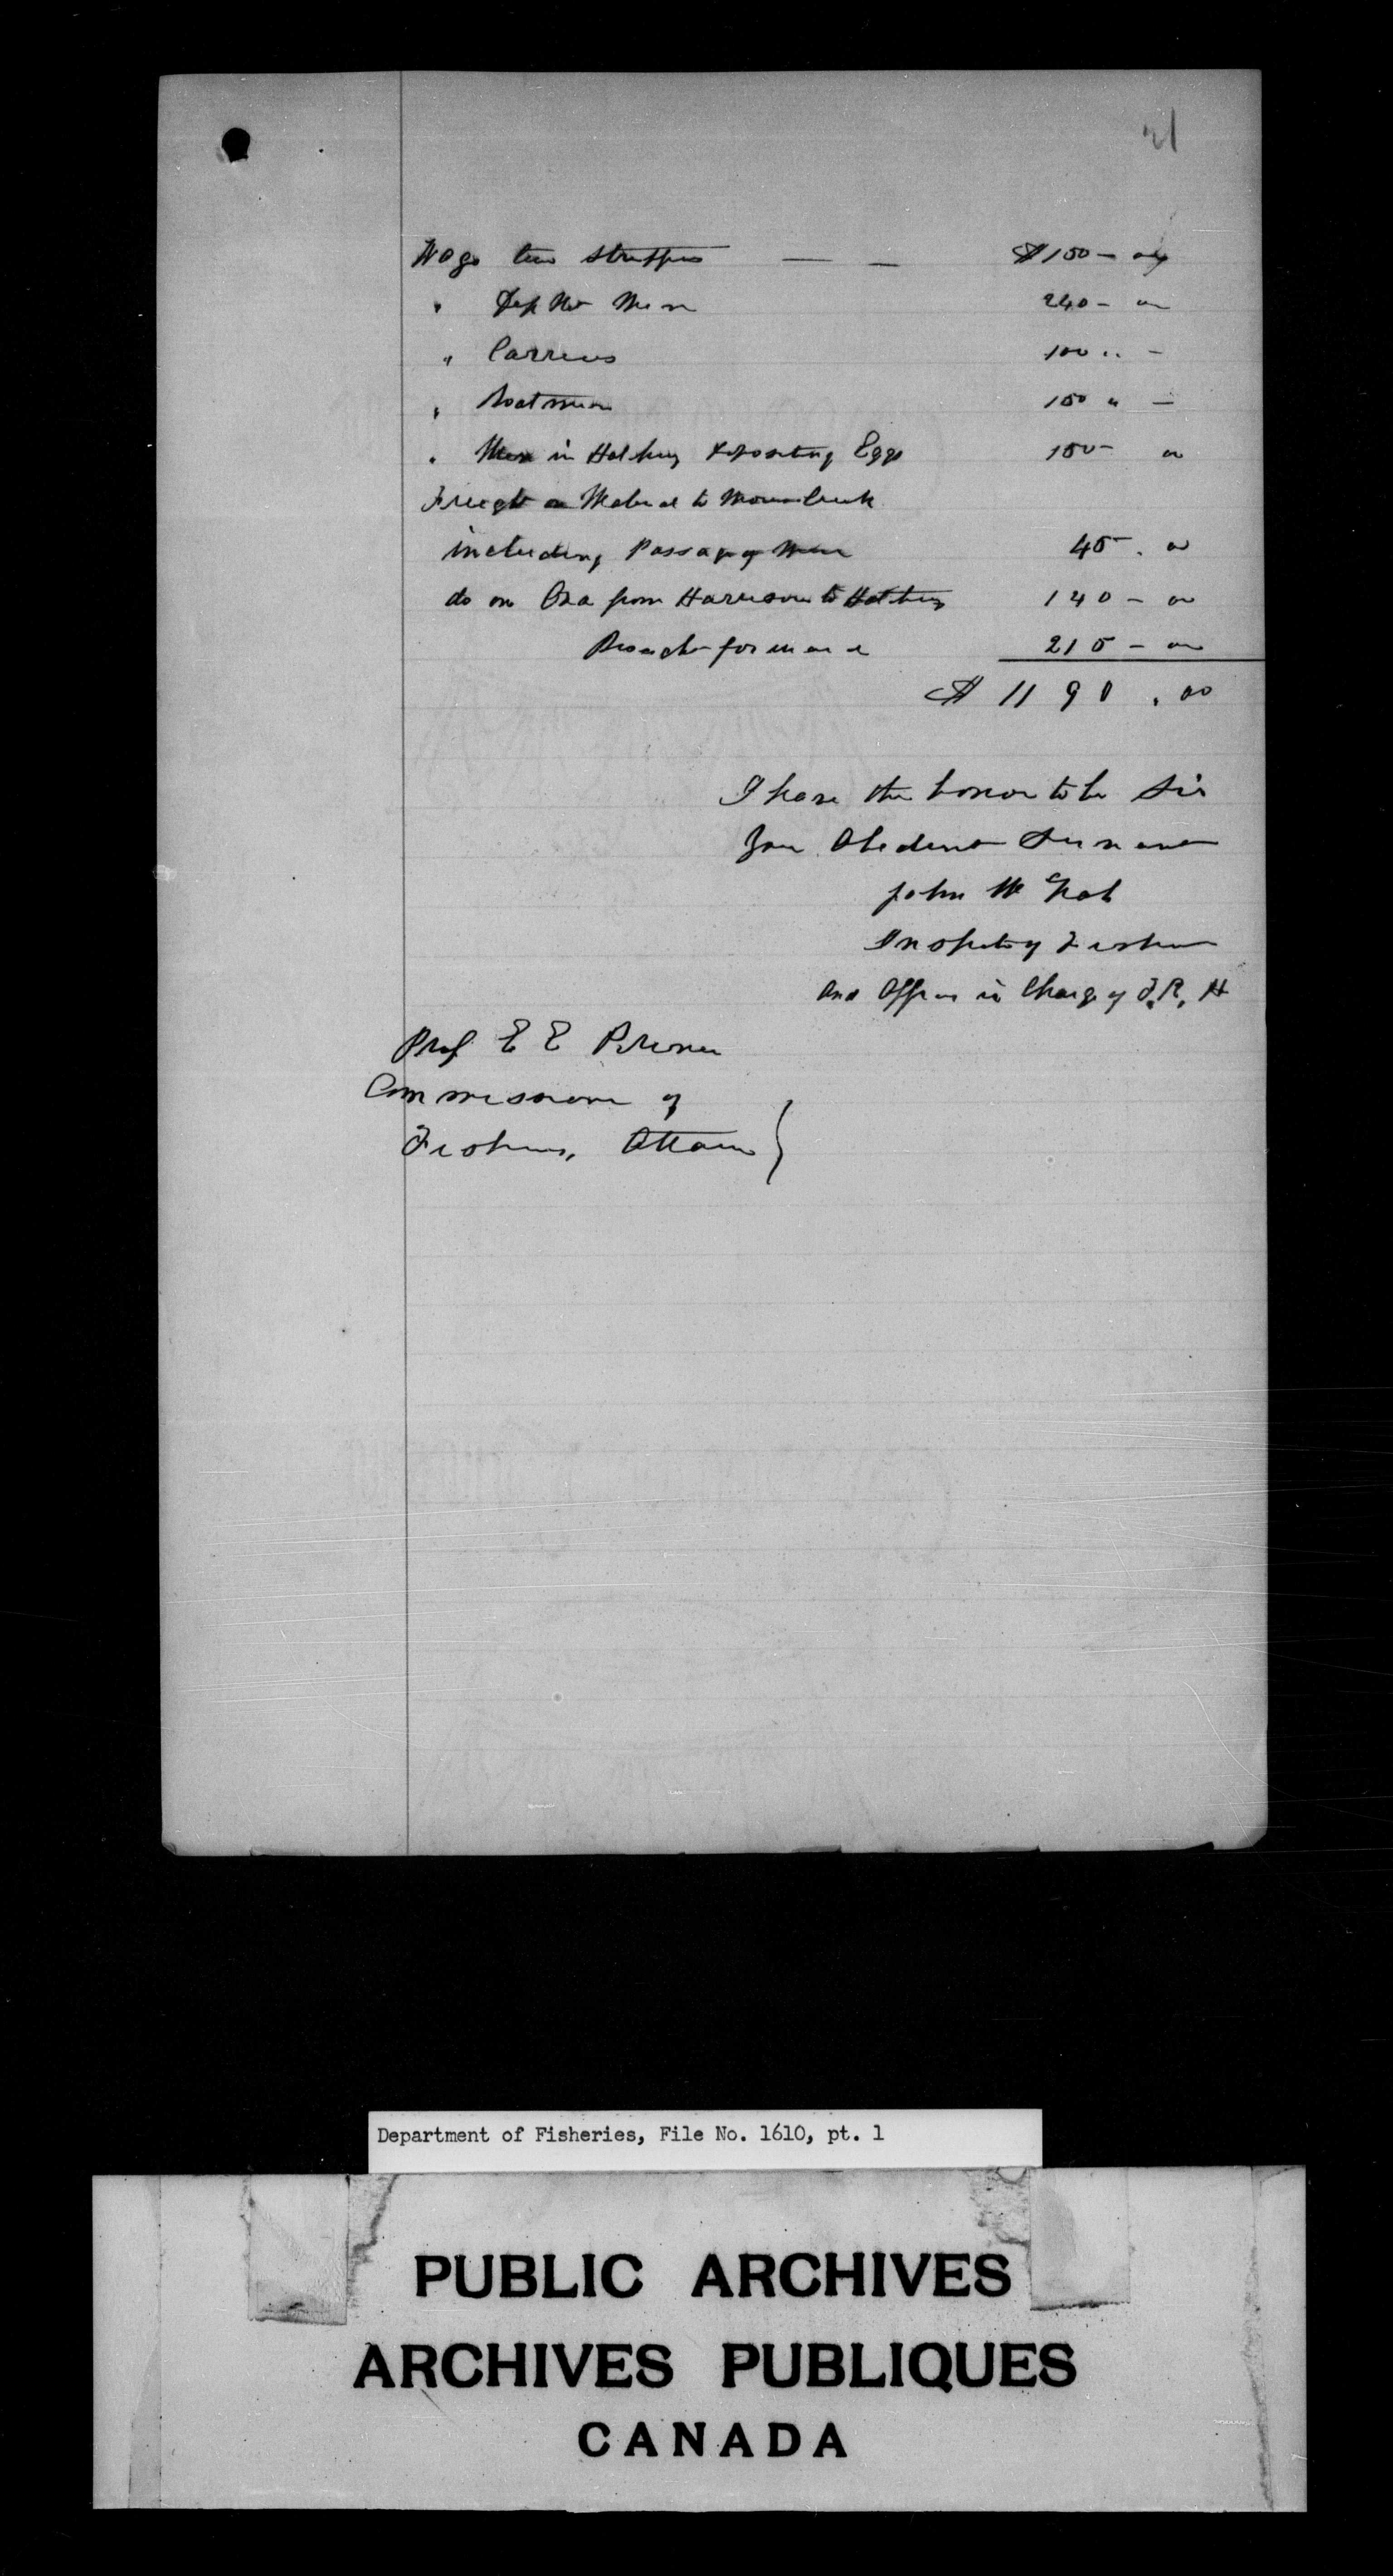 21
Wages two Strippers — — $150 - 00
" Dip Net Men 240 - 00
" Carriers 100 " -
" Boatmen 150 " -
" Men in Hatchery depositing Eggs 150 00
Freight on Material to Morris Creek
including Passage of Men 45 . 00
do on Ova from Harrison to Hatchery 140 - 00
Brought forward 215 - 00
$ 1190 . 00
I have the honor to be Sir
Your Obedient Servant
John McNab
Inspector of Fisheries
and Officer in Charge of F. R. H
Prof E E Prince
Commissioner of
Fisheries, Ottawa }
Department of Fisheries, File No. 1610, pt. 1
PUBLIC ARCHIVES
ARCHIVES PUBLIQUES
CANADA